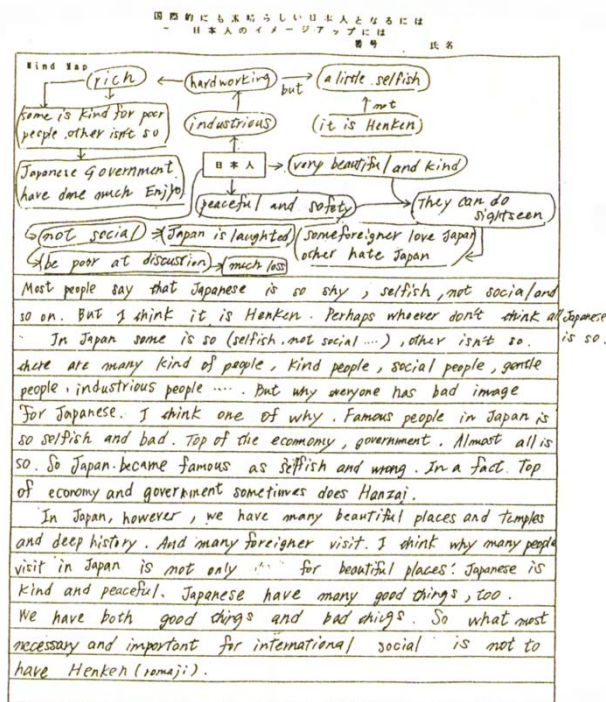 国際的にも素晴らしい日本人となるには
- 日本人のイメージアップには
番号 氏名
Mind Map
rich
hardworking
but
a little selfish
some is kind for poor
people other isn't so
industrious
not
it is Henken
Japanese Government
have done much Enjyo
日本人
very beautiful and kind
peaceful and safety
They can do
sightseen
not social
Japan is laughted
some foreigner love Japan
other hate Japan
be poor at discustion
much loss
Most people say that Japanese is so shy, selfish, not social and
so on. But I think it is Henken. Perhaps whoever don't think all Japanese
is so.
In Japan some is so (selfish, not social ....), other isn't so.
there are many kind of people, kind people, social people, gentle
people, industrious people ..... But why everyone has bad image
for Japanese. I think one of why. Famous people in Japan is
so selfish and bad. Top of the ecomomy, government. Almost all is
so. So Japan became famous as selfish and wrong. In a fact. Top
of economy and government sometimes does Hanzai.
In Japan, however, we have many beautiful places and temples
and deep history. And many foreigner visit. I think why many people
visit in Japan is not only for beautiful places. Japanese is
kind and peaceful. Japanese have many good things, too.
We have both good things and bad things. So what most
necessary and important for international social is not to
have Henken (romaji).